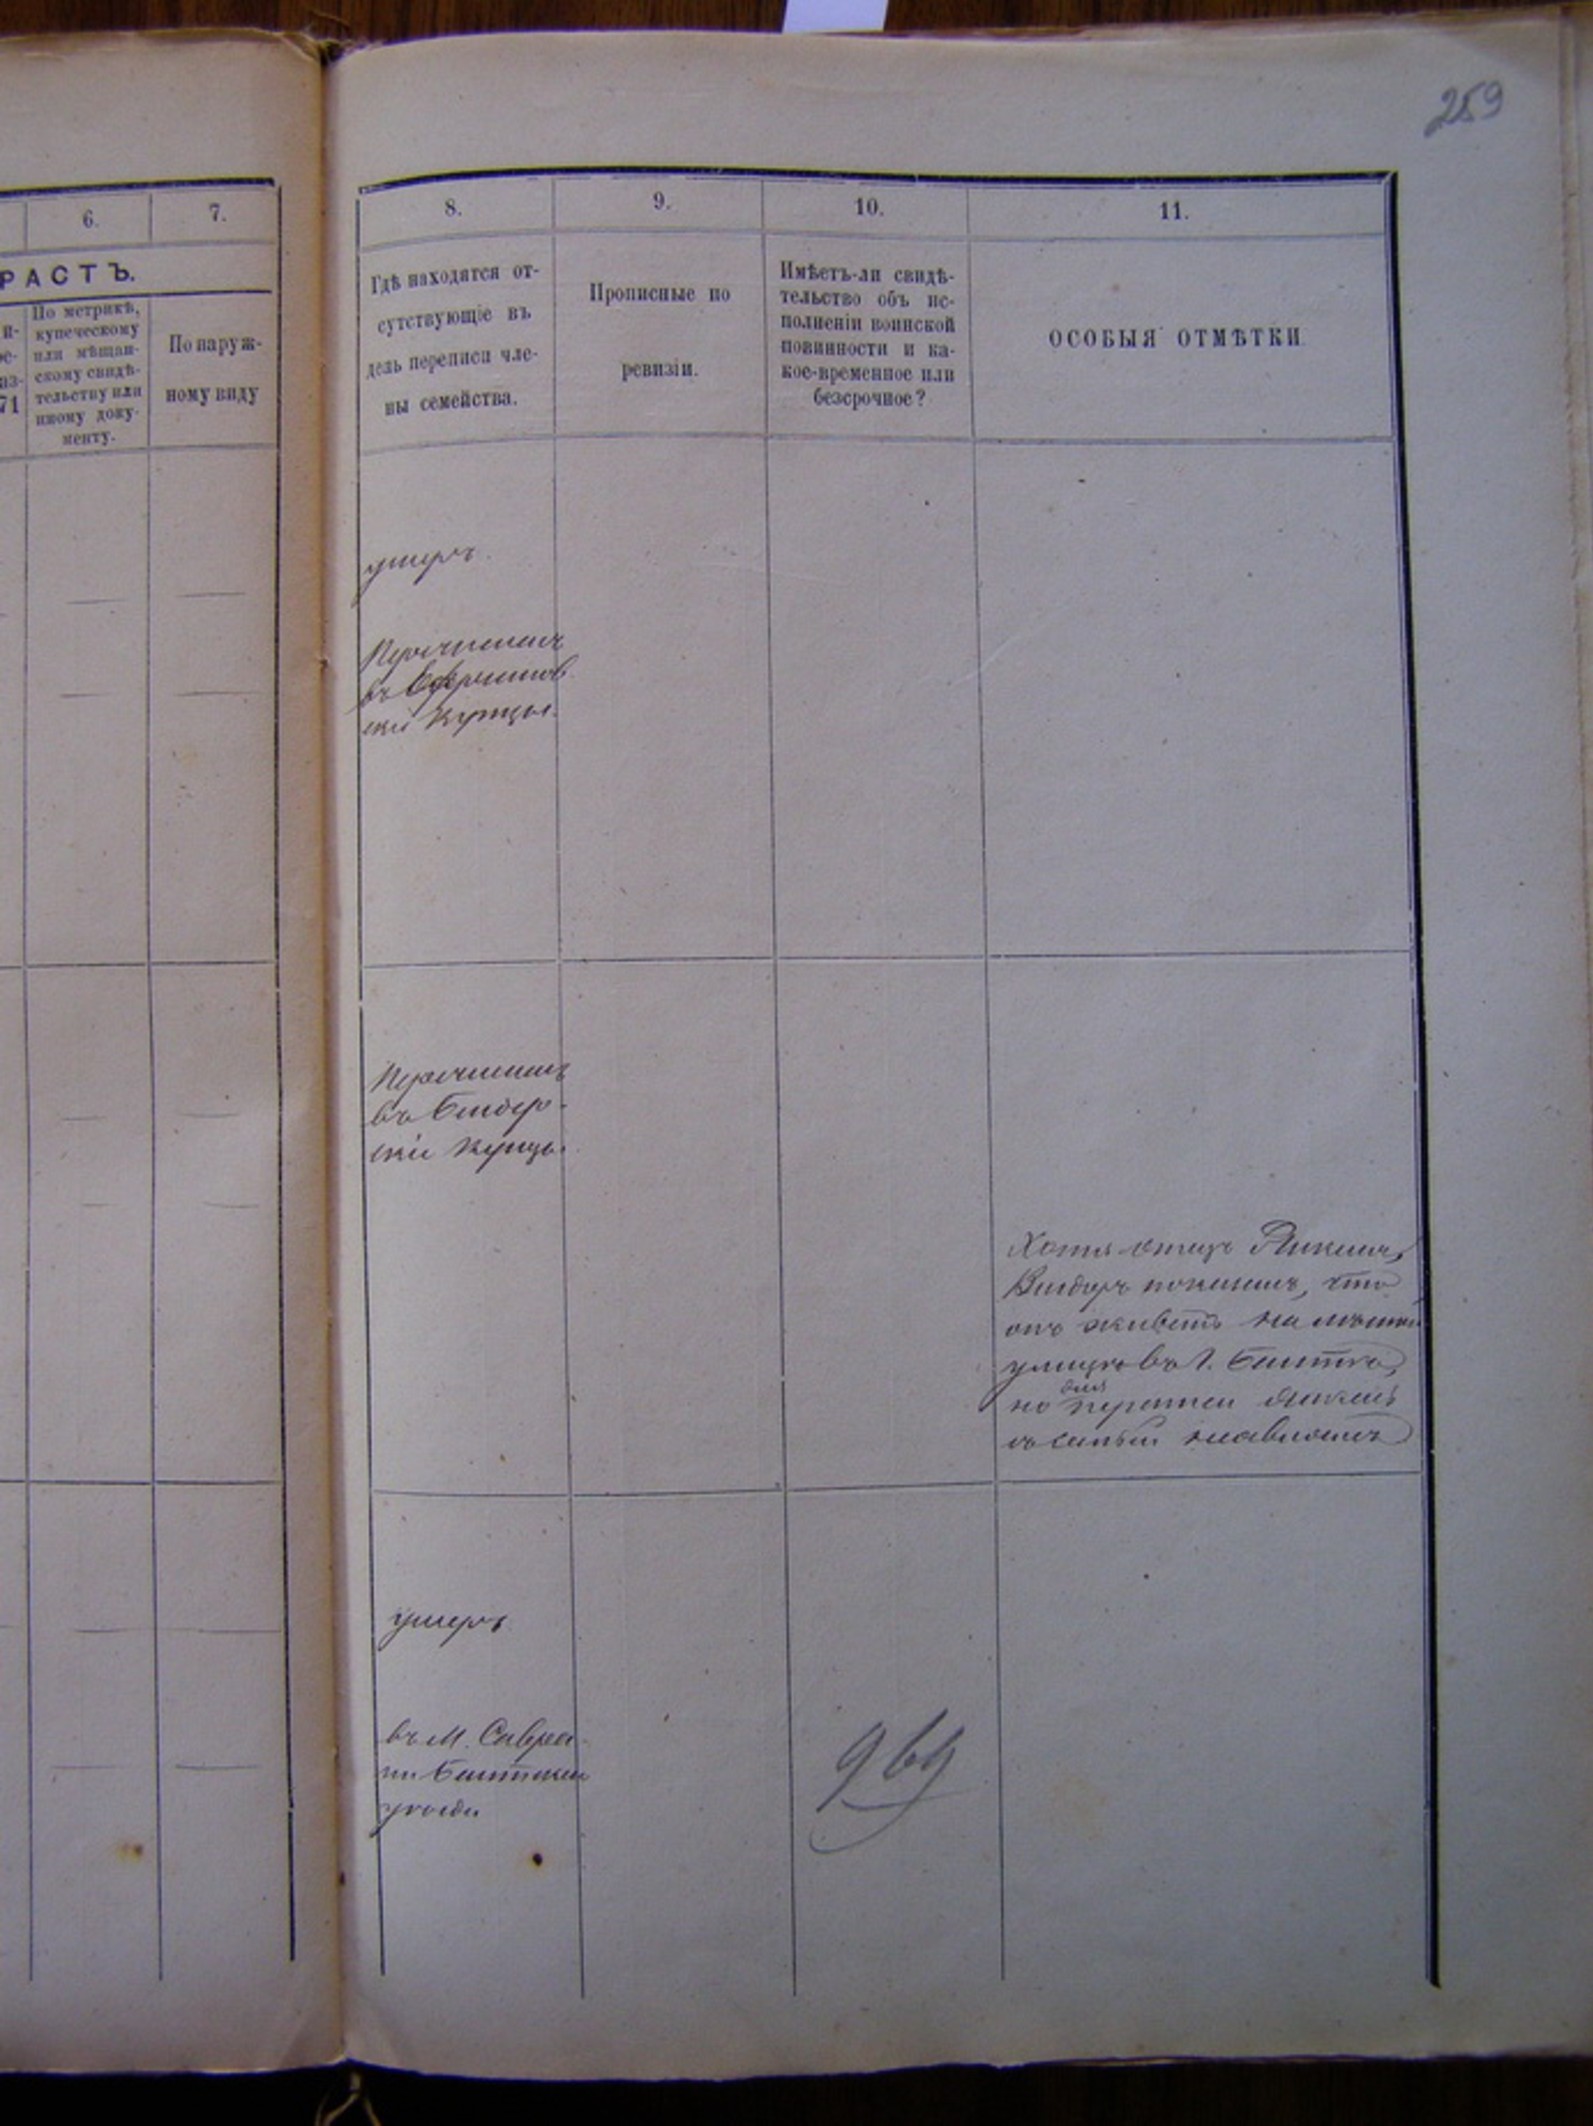 259
6.
7.
РАСТЪ.
По метрикѣ,
купеческому
или мѣщан-
скому свидѣ-
тельству или
иному доку-
менту.
По наруж-
ному виду
71
8.
9.
10.
11.
Гдѣ находятся от-
сутствующіе въ
день переписи чле-
ны семейства.
Прописные по
ревизіи.
Имѣетъ-ли свидѣ-
тельство объ ис-
полненіи воинской
повинности и ка-
кое-временное или
безсрочное?
ОСОБЫЯ ОТМѢТКИ.
умеръ.
Перечисленъ
въ
купцы.
Перечисленъ
въ Бендер-
скіе купцы.
Хотя отецъ
показалъ, что
онъ живетъ на
улицѣ въ г. Балтѣ,
но для переписи
умеръ
въ м. Савра-
ни Балтскаго
уѣзда
969